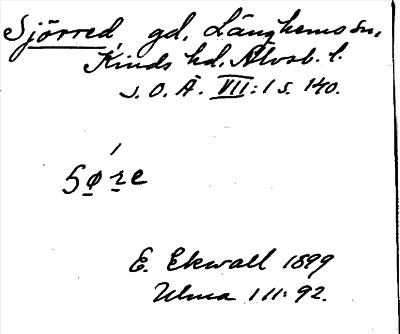 Sjörred gd. Länghems sn,
Kinds hd. Älvsb. l.
S. O. Ä. VII:1 s. 140.
E. Ekwall 1899
Ulma 111:92.